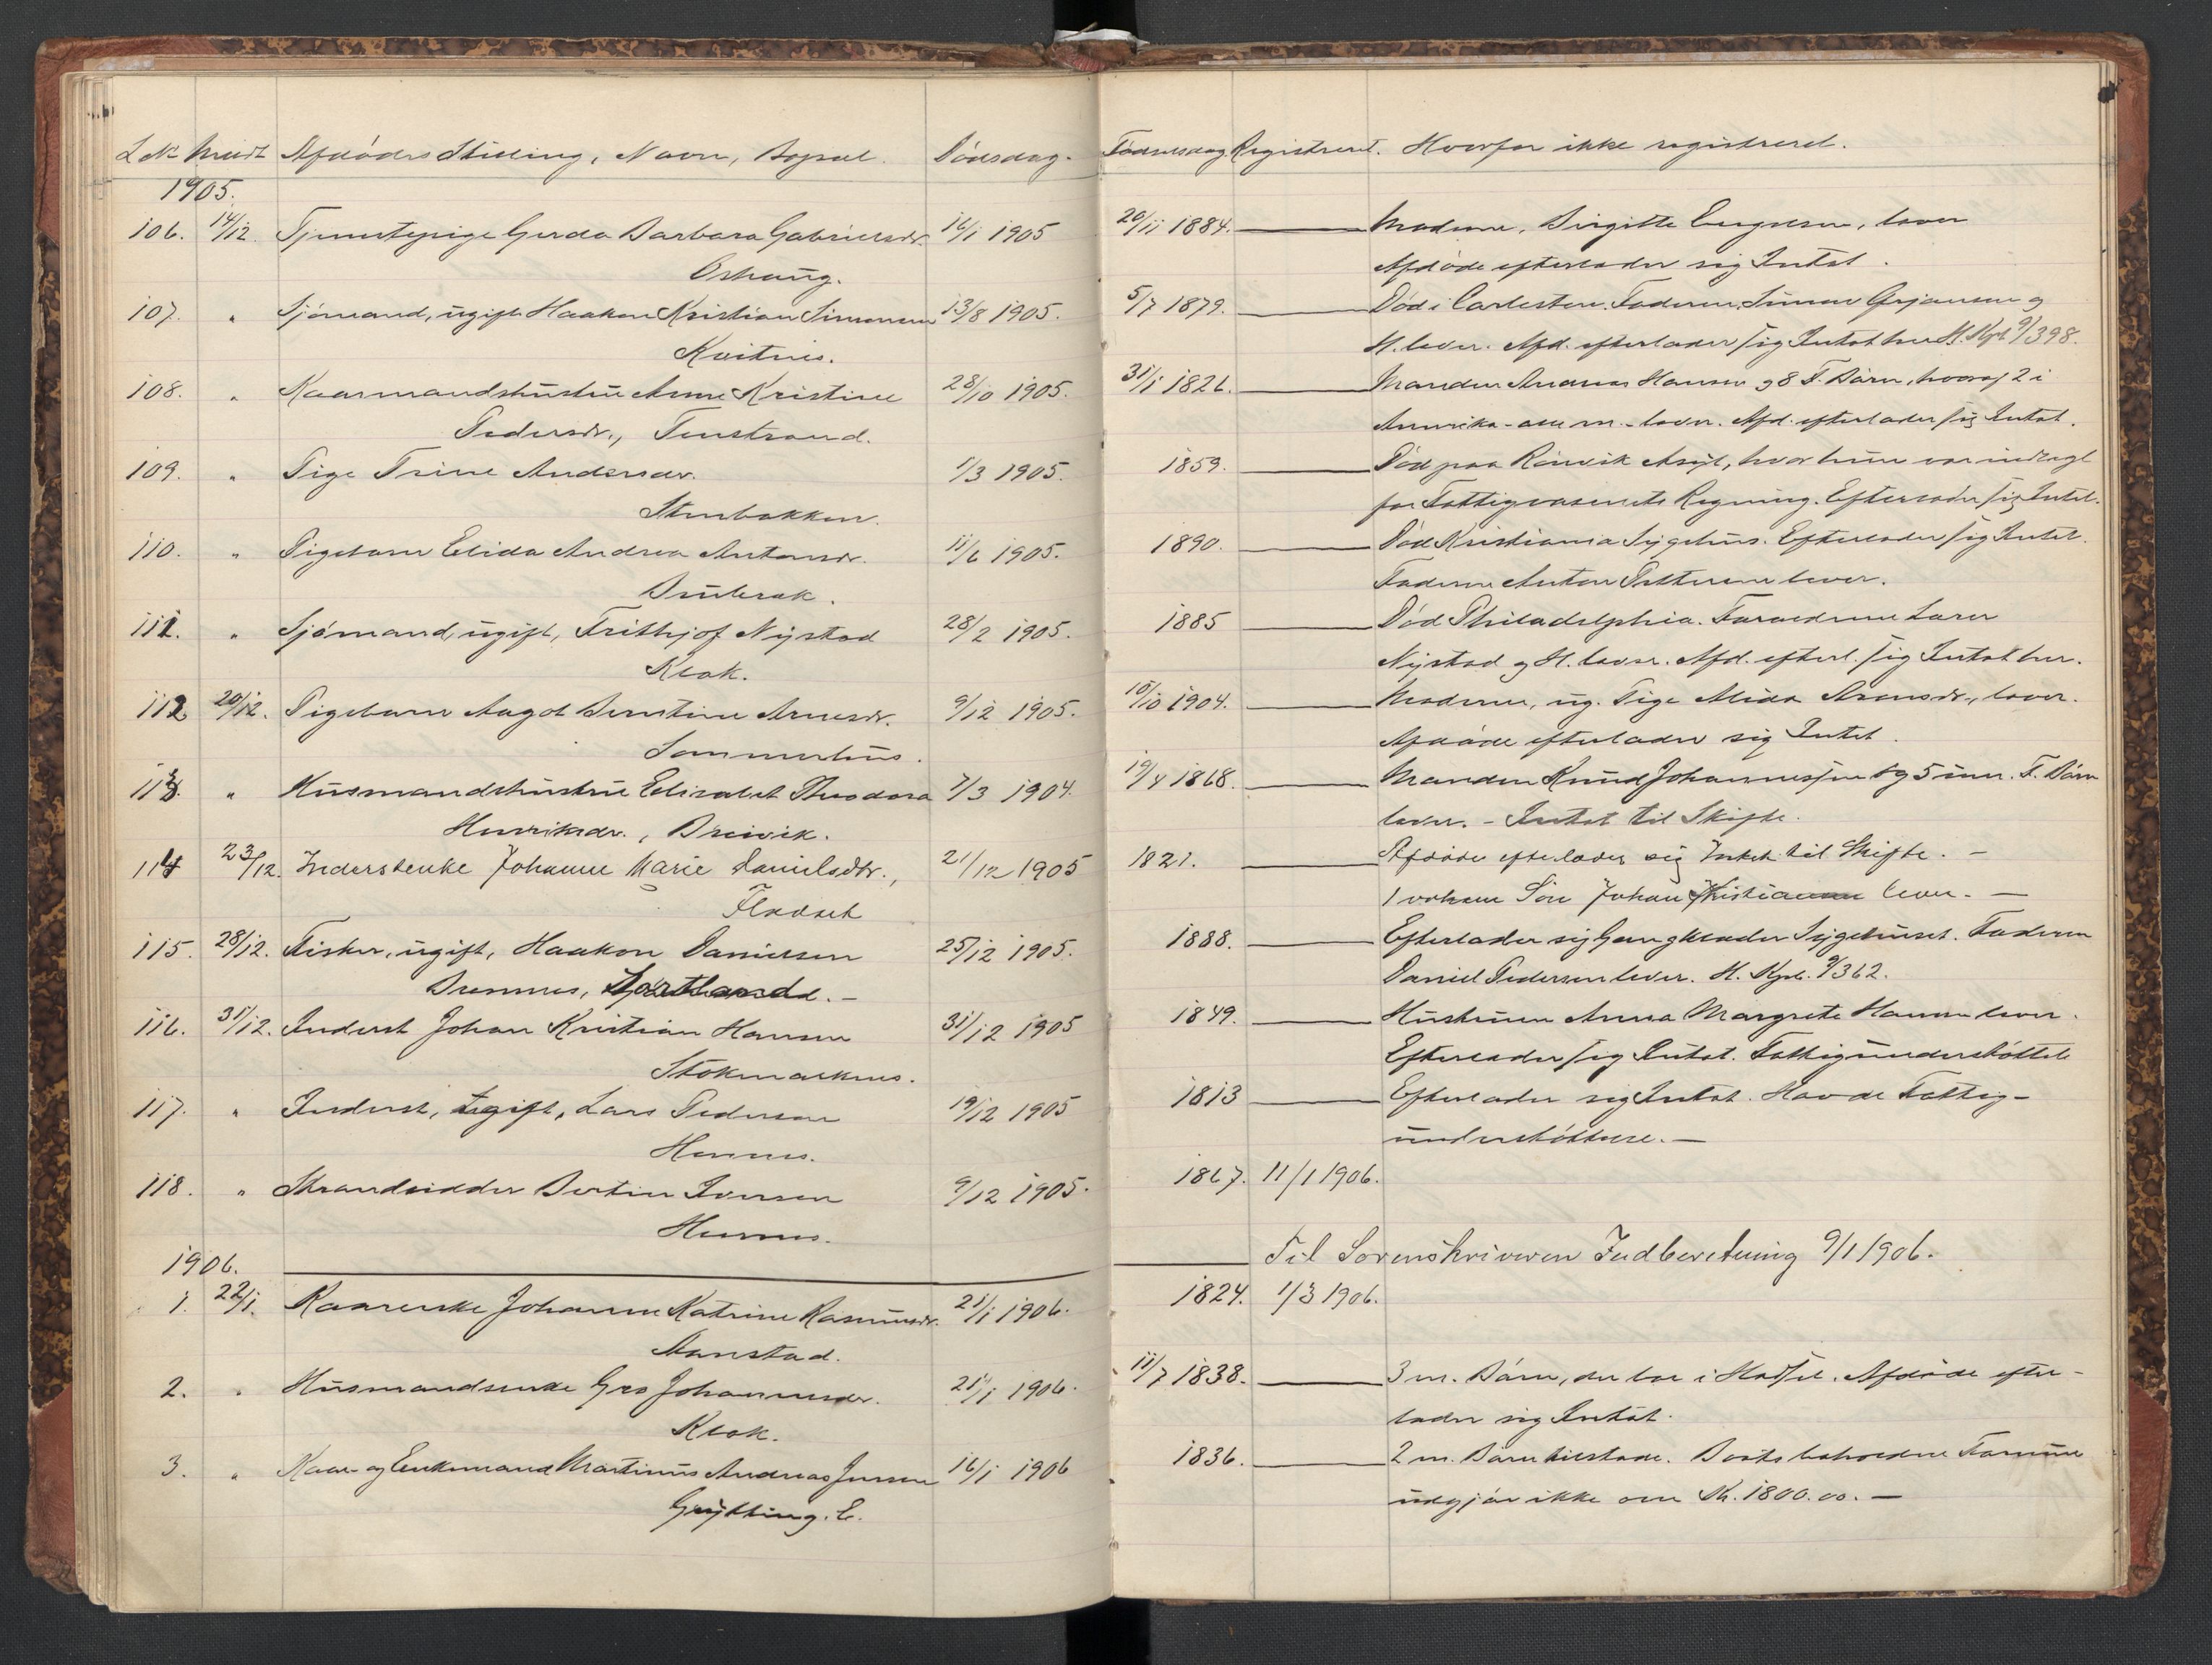 L. No Meldt Afdødes Stilling, Navn, Bopæl. Dødsdag. Fødselsdag Registreret. Hvorfor ikke registreret.
1905.
106. 14/12. Tjenestepige Gerda Barbara Gabrielsdr. 16/1 1905 20/11 1884. Moderen, Birgitte, lever
Oshaug. Afdøde efterlader sig Intet.
107. " Sjømand, ugift Haakon Kristian Simonsen 13/8 1905. 5/7 1879. Død i Carlesten. Faderen, Simon og
Kvitnes. H. lever. Afd. efterlader sig Intet her H. Kpt 9/398.
108. " Kaarmandshustru Anne Kristine 28/10 1905. 31/1 1826. Manden Andreas Hansen og 8 F. Børn, hvoraf 2 i
Pedersdr., Amerika - alle m. - lever. Afd. efterlader sig Intet.
109. " Pige Trine Andersdr. 1/3 1905. 1859. Død paa Rønvik Asyl, hvor hun var indlagt
Stenbakken. for Fattigvæsenets Regning. Efterlader sig Intet.
110. " Pigebarn Elida Andrea Antonsdr. 11/6 1905. 1890. Død Kristiania Sygehus. Efterlader sig Intet.
Faderen Anton Pettersen lever.
111. " Sjømand, ugift, Frithjof Nystad 28/2 1905. 1885 Død Philadelphia. Forældrene Lars
Klok. Nystad og H. lever. Afd. efterl. sig Intet her.
112 20/12. Pigebarn Aagot Berntine Arnesdr. 9/12 1905. 15/10 1904. Moderen, ug. Pige Alida Aronsdr., lever.
Sommerhus. Afdøde efterlader sig Intet.
113. " Husmandshustru Elisabet Theodora 7/3 1904. 19/4 1868. Manden Knud Johannessen og 5 um. F. Børn
Henriksdr., Breivik. lever. - Intet til Skifte.
114 23/12. Inderstenke Johanne Marie Danielsdtr., 21/12 1905 1821. Afdøde efterlader sig Intet til Skifte. -
Fladset 1 voksen Søn Johan Kristian lever. -
115. 28/12. Fisker, ugift, Haakon Danielsen 25/12 1905. 1888. Efterlader sig Gangklæder Sygehuset. Faderen
Bremnes, Hortland. - Daniel Pedersen lever. H. Kpt. 9/362.
116. 31/12. Inderst Johan Kristian Hansen 31/12 1905 1849. Hustruen Anna Margrete Hansen lever.
Stokmarknes. Efterlader sig Intet. Fattigunderstøttet
117. " Inderst, ugift, Lars Pedersen 19/12 1905 1813 Efterlader sig Intet. Havde Fattig-
Hennes. understøttelse. -
118. " Strandsidder Bertin Iversen 9/12 1905. 1867. 11/1 1906.
Hennes.
1906. Til Sorenskriveren Indberetning 9/1 1906.
1. 22/1. Kaarenke Johanna Katrine Rasmusdr. 21/1 1906. 1824. 1/3 1906.
Manstad.
2. " Husmandsenke Gro Johannesdr. 21/1 1906. 11/7 1838. 3 m. Børn, der bor i Hadsel. Afdøde efter-
Klok. lader sig Intet.
3. " Kaar- og Enkemand Martinus Andreas Jensen 16/1 1906 1836. 2 m. Børn tilstede. Boets beholdne Formue
Grytting. E. udgjør ikke over Kr. 1800.00. -